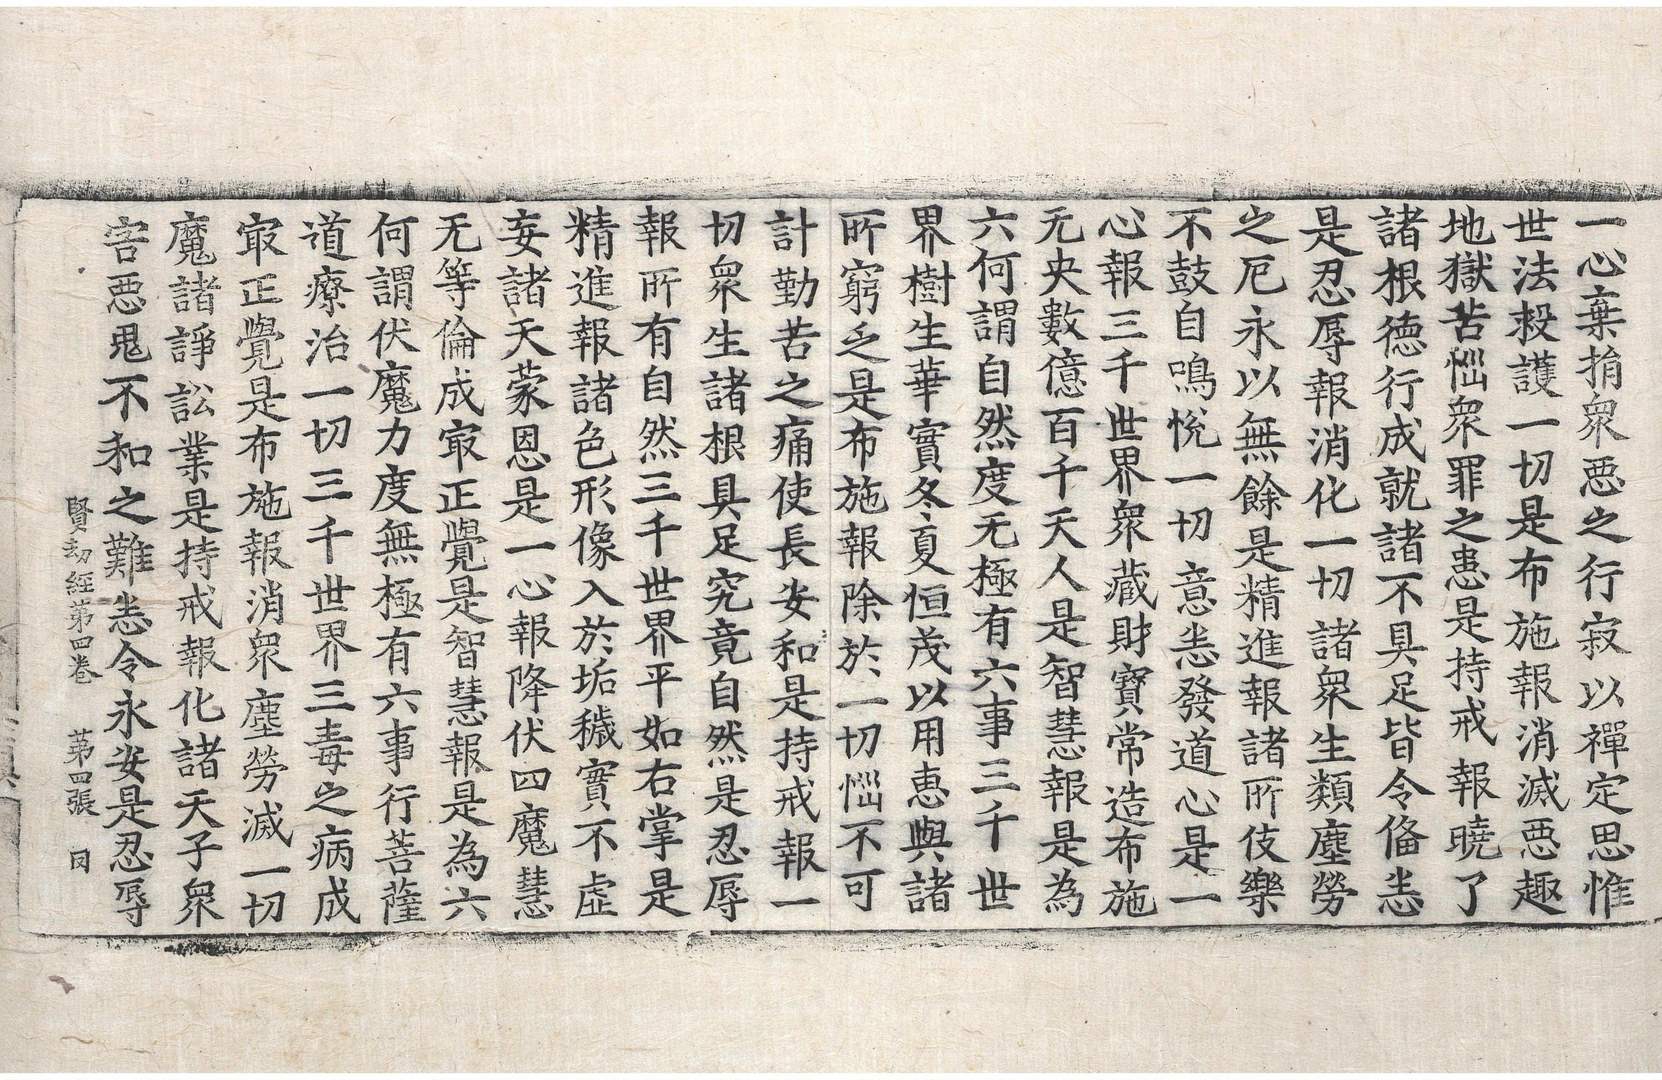 一心棄捐衆惡之行寂以禪定思惟
世法救護一切是布施報消滅惡趣
地獄苦惱衆罪之患是持戒報曉了
諸根德行成就諸不具足皆令俻恙
是忍辱報消化一切諸衆生類塵勞
之厄永以無餘是精進報諸所伎樂
不鼓自鳴悅一切意恙發道心是一
心報三千世界衆藏財寶常造布施
无央數億百千天人是智慧報是為
六何謂自然度无極有六事三千世
界樹生華實冬夏恒茂以用惠與諸
所窮乏是布施報除於一切惱不可
計勤苦之痛使長安和是持戒報一
切衆生諸根具足究竟自然是忍辱
報所有自然三千世界平如右掌是
精進報諸色形像入於垢穢實不虛
妄諸天蒙恩是一心報降伏四魔慧
无等倫成㝡正覺是智慧報是為六
何謂伏魔力度無極有六事行菩薩
道療治一切三千世界三毒之病成
㝡正覺是布施報消衆塵勞滅一切
魔諸諍訟業是持戒報化諸天子衆
害惡鬼不和之難恙令永安是忍辱
賢劫經第四卷 第四張 曰